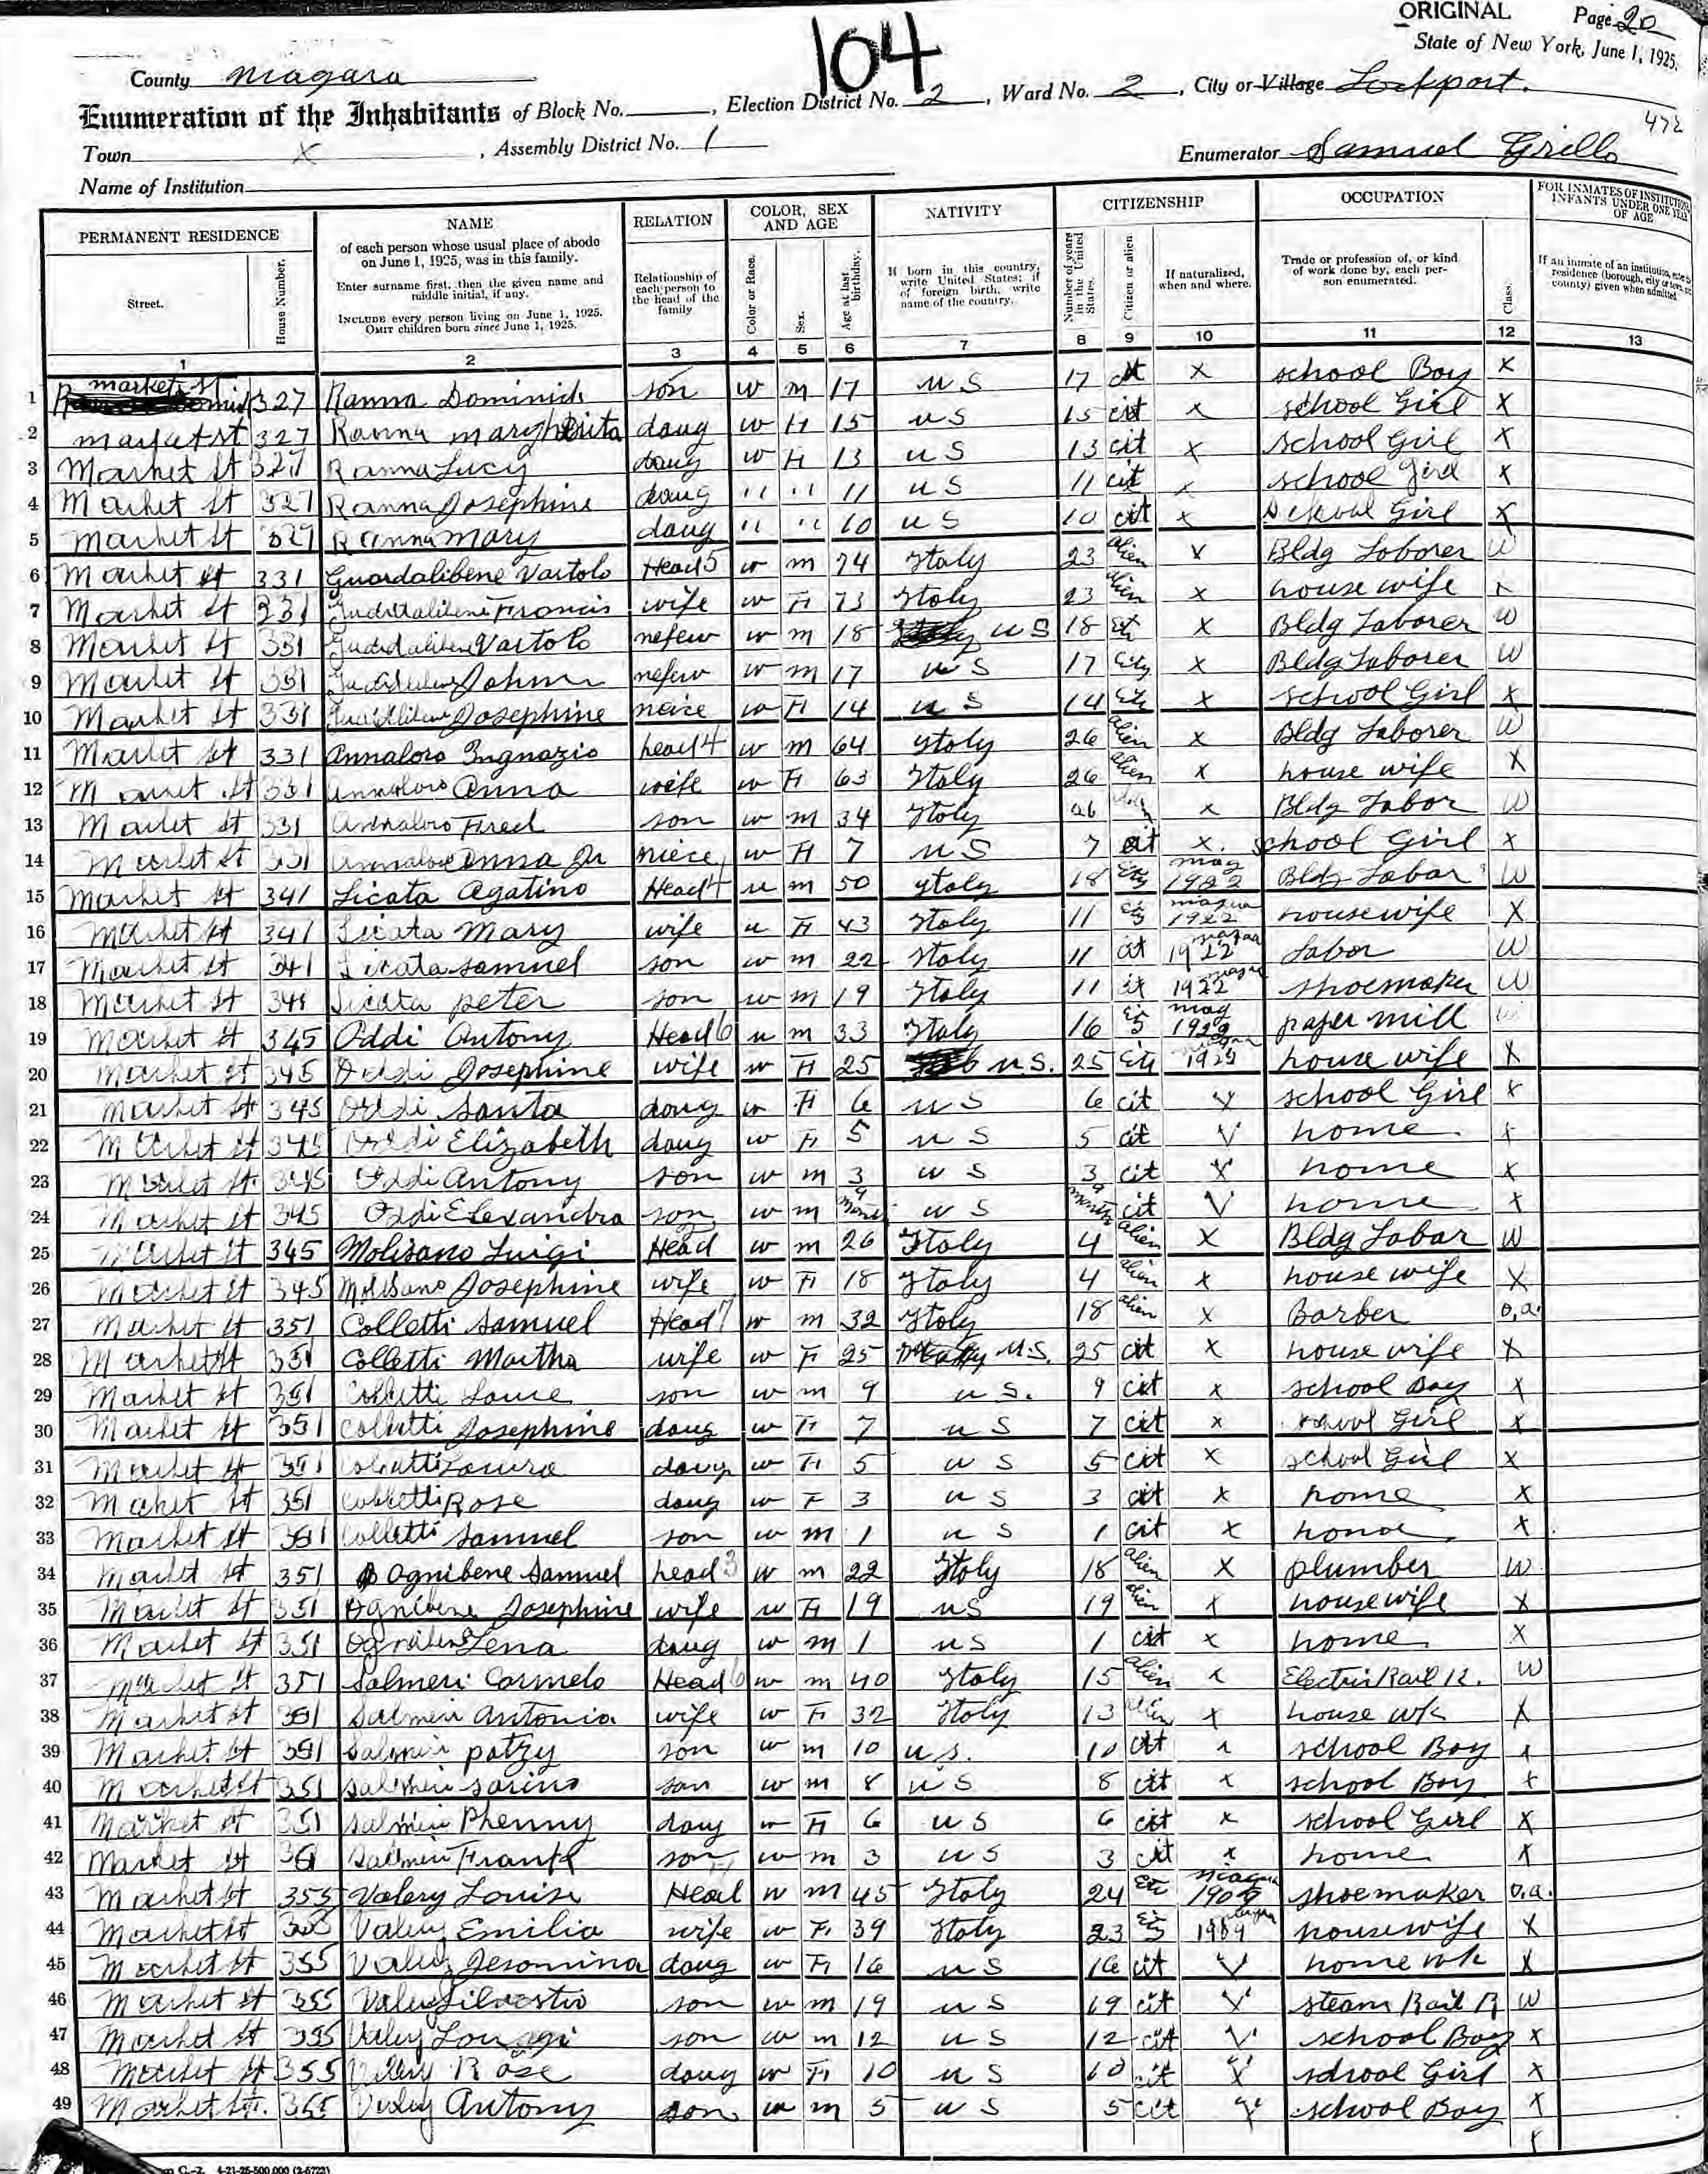 104
ORIGINAL Page 20
State of New York, June 1, 1925.
County Niagara
Enumeration of the Inhabitants of Block No. , Election District No. 2 , Ward No. 2 , City or Village Lockport.
472
Town x , Assembly District No. 1
Enumerator Samuel Grillo
Name of Institution
PERMANENT RESIDENCE
Street.
House Number.
NAME
of each person whose usual place of abode on June 1, 1925, was in this family.
Enter surname first, then the given name and middle initial, if any.
INCLUDE every person living on June 1, 1925.
OMIT children born since June 1, 1925.
RELATION
Relationship of each person to the head of the family
COLOR, SEX AND AGE
Color or Race.
Sex.
Age at last birthday.
NATIVITY
If born in this country, write United States; if of foreign birth, write name of the country.
CITIZENSHIP
Number of years in the United States.
Citizen or alien.
If naturalized, when and where.
OCCUPATION
Trade or profession of, or kind of work done by, each person enumerated.
Class.
FOR INMATES OF INSTITUTIONS INFANTS UNDER ONE YEAR OF AGE
If an inmate of an institution, residence (borough, city or town, county) given when admitted
1 2 3 4 5 6 7 8 9 10 11 12 13
1 market st 327 Ranna Dominick son w m 17 U S 17 cit x school Boy x
2 market st 327 Ranna Margherita daug w F 15 U S 15 cit x school Girl x
3 Market St 327 Ranna Lucy daug w F 13 U S 13 cit x school Girl x
4 Market St 327 Ranna Josephine daug " " 11 U S 11 cit x school Girl x
5 Market St 327 Ranna Mary daug " " 10 U S 10 cit x school Girl x
6 Market St 331 Guardalibene Vartolo Head 5 w m 74 Italy 23 alien x Bldg Laborer W
7 Market St 231 Francis wife w F 73 Italy 23 alien x house wife x
8 Market St 331 Vartolo nefew w m 18 U S 18 cit x Bldg Laborer W
9 Market St 331 John nefew w m 17 U S 17 city x Bldg Laborer W
10 Market St 331 Josephine neice w F 14 U S 14 x school Girl x
11 Market St 331 Annaloro Ingnazio head 4 w m 64 Italy 26 alien x Bldg Laborer W
12 Market St 331 Annaloro Anna wife w F 63 Italy 26 alien x house wife x
13 Market St 331 Annaloro Fred son w m 34 Italy 26 x Bldg Labor W
14 Market St 331 Annaloro Anna Jr niece w F 7 U S 7 cit x. school Girl x
15 Market St 341 Licata Agatino Head 4 w m 50 Italy 18 city niag 1922 Bldg Labor W
16 Market St 341 Licata Mary wife w F 43 Italy 11 1922 housewife X
17 Market St 341 Licata Samuel son w m 22 Italy 11 cit 1922 Labor W
18 Market St 341 Licata peter son w m 19 Italy 11 cit 1922 shoemaker W
19 Market St 345 Oddi Antony Head 6 w m 33 Italy 16 niag 1922 paper mill W
20 Market St 345 Oddi Josephine wife w F 25 U.S. 25 city house wife X
21 Market St 345 Oddi Santa daug w F 6 U S 6 cit x school Girl x
22 Market St 345 Oddi Elizabeth daug w F 5 U S 5 cit x home x
23 Market St. 345 Oddi Antony son w m 3 U S 3 cit x home x
24 Market St 345 Oddi Elexandra son w m 9 mont U S 9 month cit x home x
25 Market St 345 Molisano Luigi Head 2 w m 26 Italy 4 alien x Bldg Labor W
26 Market St 345 Molisano Josephine wife w F 18 Italy 4 alien x house wife x
27 Market St 351 Colletti Samuel Head 7 w m 32 Italy 18 alien x Barber O.A.
28 Market St 351 Colletti Martha wife w F 25 U.S. 25 cit x house wife x
29 Market St 351 Colletti son w m 9 U.S. 9 cit x school Boy x
30 Market St 351 Colletti Josephine daug w F 7 U S 7 cit x school Girl x
31 Market St 351 Colletti Laura daug w F 5 U S 5 cit x school Girl x
32 Maket St 351 Colletti Rose daug w F 3 U S 3 cit x home x
33 Market St 351 Colletti Samuel son w m 1 U S 1 cit x home x
34 Market St 351 Ognibene Samuel head 3 w m 22 Italy 18 alien x plumber W
35 Market St 351 Ognibene Josephine wife w F 19 U S 19 alien x housewife x
36 Market St 351 Ognibene Lena daug w m 1 U S 1 cit x home x
37 Market St 351 Salmeri Carmelo Head 6 w m 40 Italy 15 alien x Electric Rail R. W
38 Market St 351 Salmeri Antonia wife w F 32 Italy 13 alien x house wk x
39 Market St 351 Salmeri patzy son w m 10 U.S. 10 cit x school Boy x
40 Market St 351 Salmeri Sarino son w m 8 U S 8 cit x school Boy x
41 Market St 351 Salmeri Phenny daug w F 6 U S 6 cit x school Girl x
42 Market St 351 Salmeri Frank son w m 3 U S 3 cit x home x
43 Market St 355 Valery Louise Head w m 45 Italy 24 Niagara shoemaker O.A.
44 Market St 355 Valery Emilia wife w F 39 Italy 23 housewife x
45 Market St 355 Valery Jesomina daug w F 16 U S 16 cit x home wk x
46 Market St 355 Valery Silvestro son w m 19 U S 19 cit x steam Rail R W
47 Market St 355 Valery son w m 12 U S 12 cit x school Boy x
48 Market St 355 Valery Rose daug w F 10 U S 10 cit x school Girl x
49 Market St. 355 Valery Antony son w m 5 U S 5 cit x school Boy x
4-21-25-500,000 (2-5723)